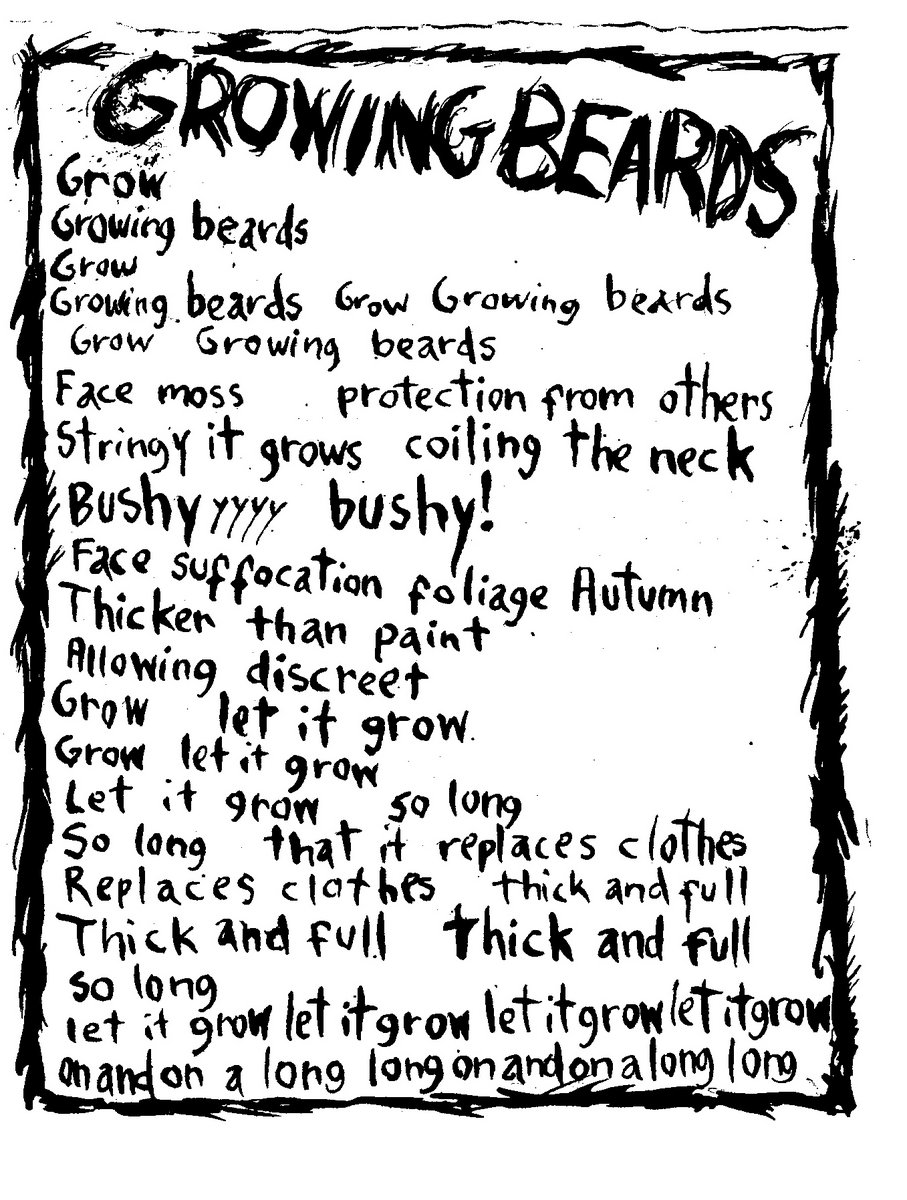 GROWING BEARDS
Grow
Growing beards
Grow
Growing beards Grow Growing beards
Grow Growing beards
Face moss protection from others
Stringy it grows coiling the neck
Bushy yyyy bushy!
Face suffocation foliage Autumn
Thicker than paint
Allowing discreet
Grow let it grow
Grow let it grow
Let it grow so long
So long that it replaces clothes
Replaces clothes thick and full
Thick and full thick and full
so long
let it grow let it grow let it grow let it grow
on and on a long long on and on a long long